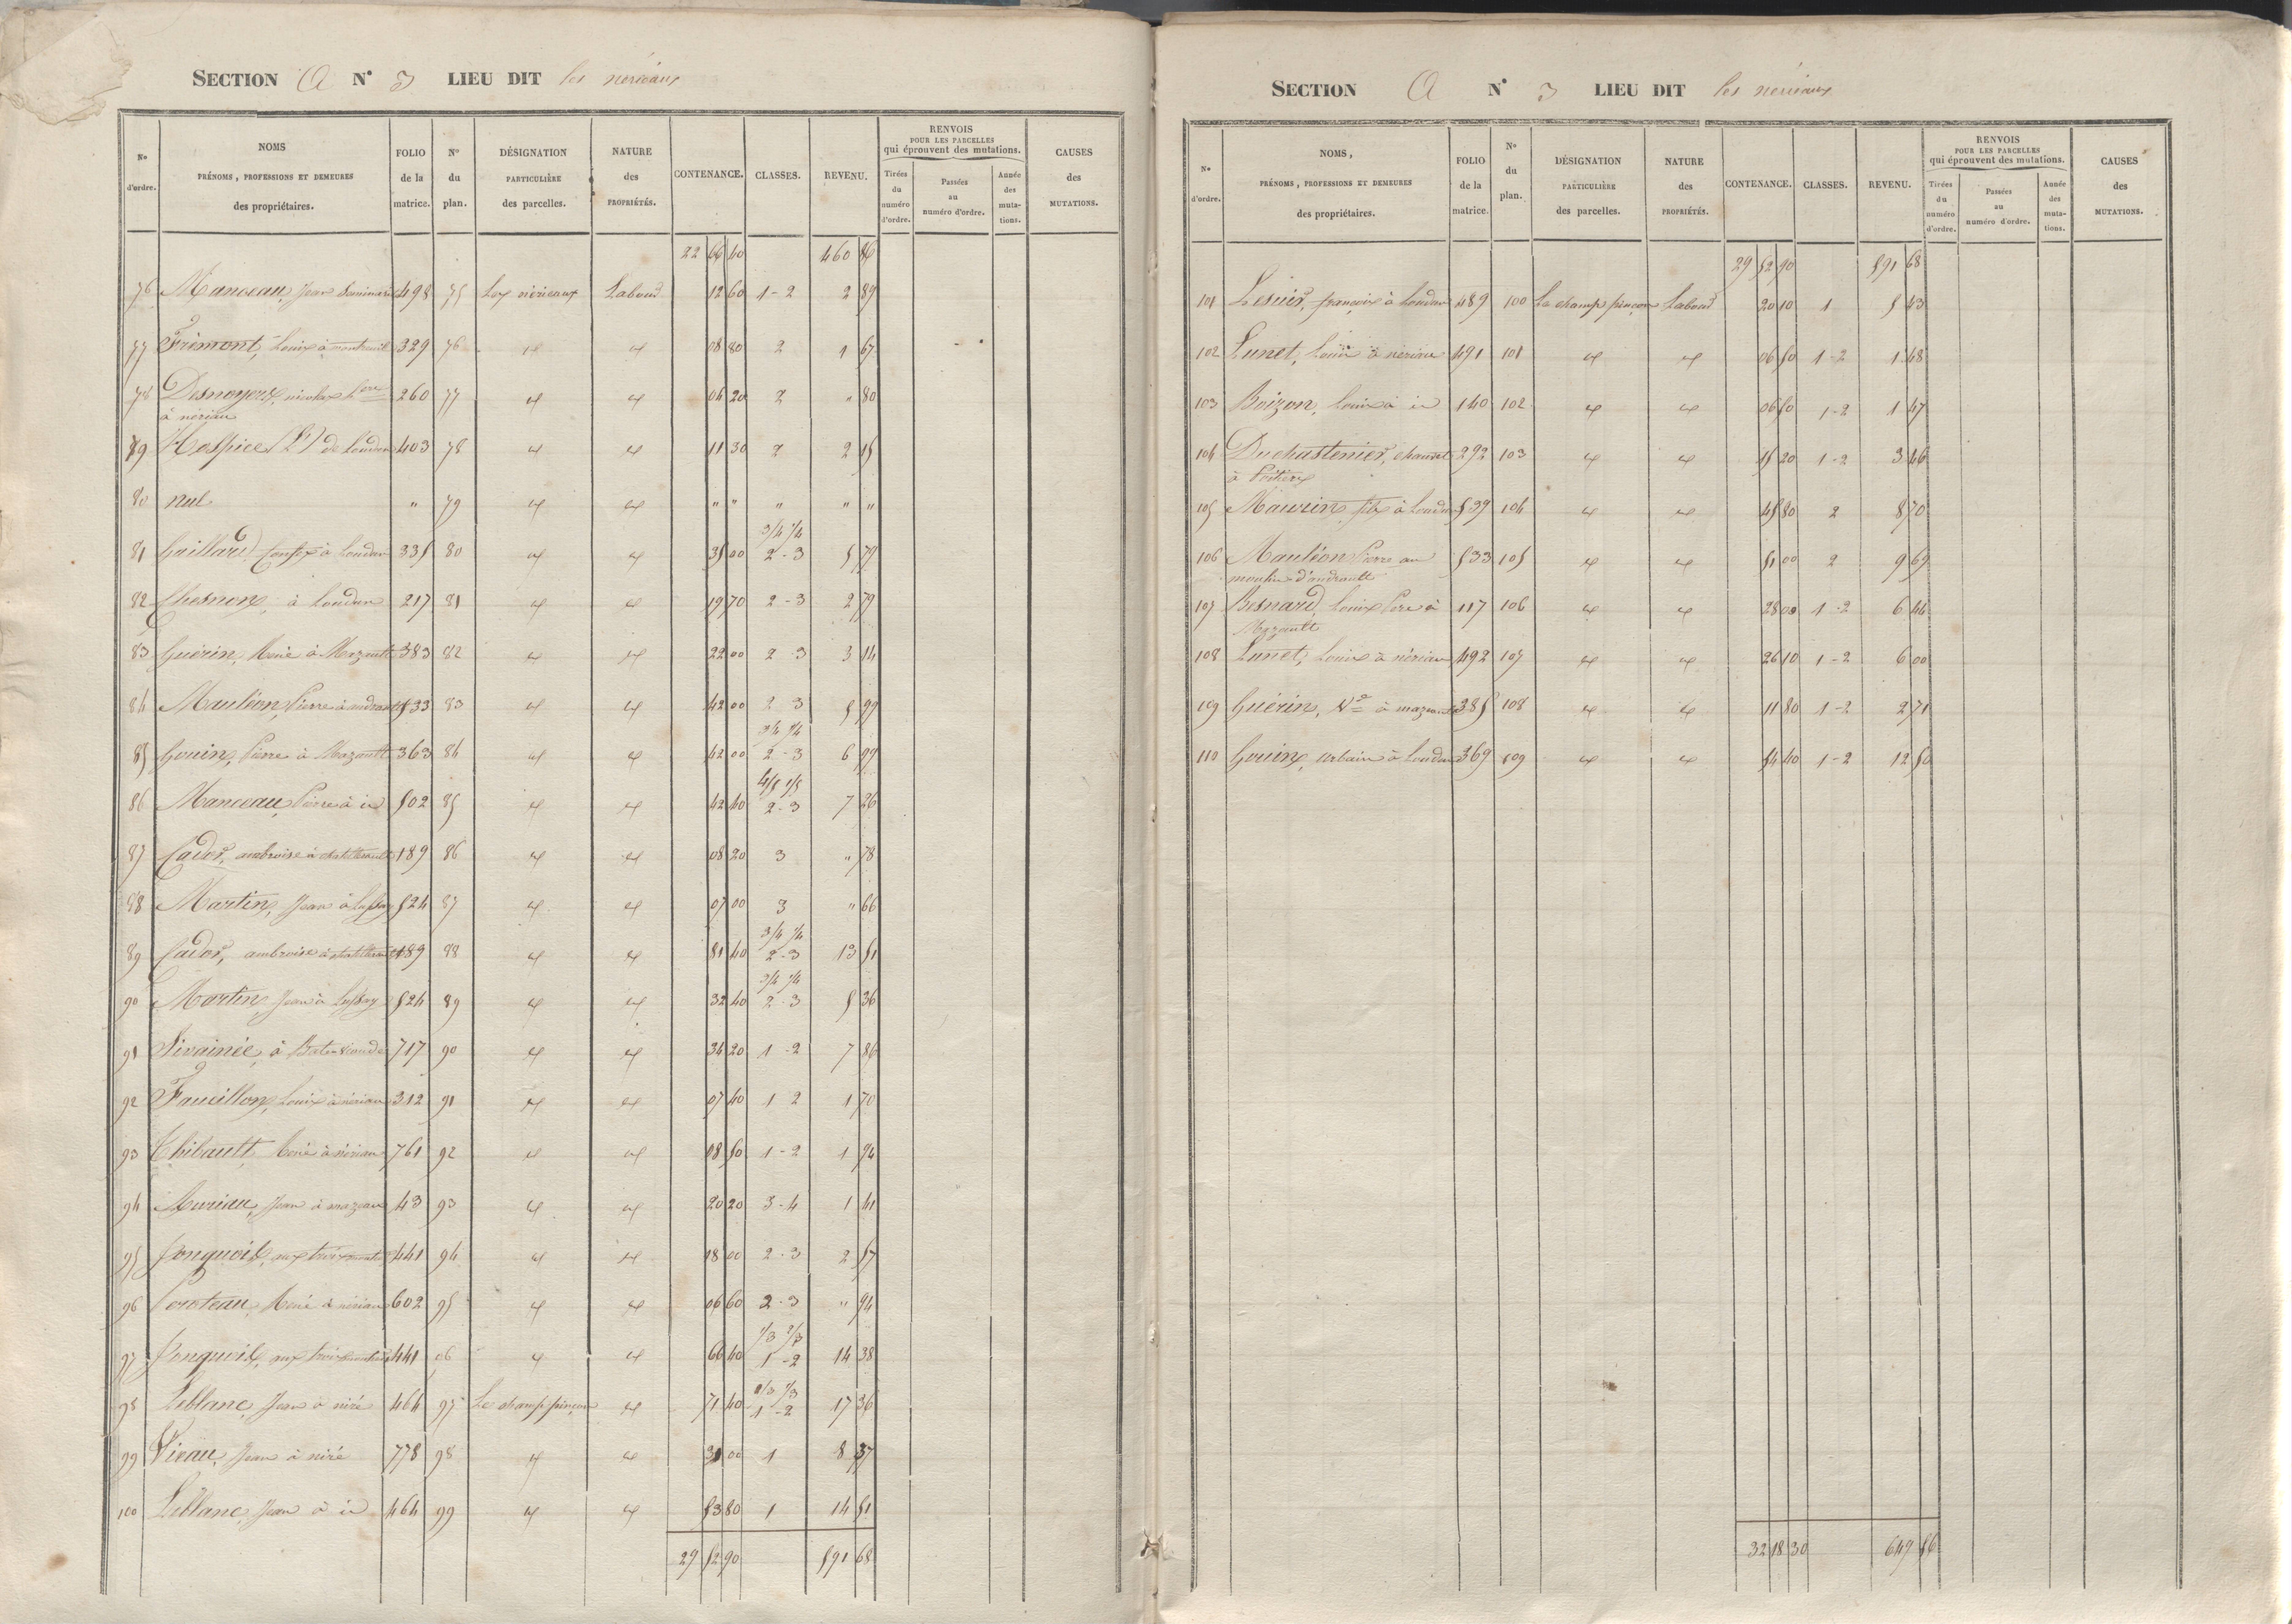 SECTION A N° 3 LIEU DIT les nérieaux
N° d'ordre. NOMS PRÉNOMS, PROFESSIONS ET DEMEURES des propriétaires. FOLIO de la matrice. N° du plan. DÉSIGNATION PARTICULIÈRE des parcelles. NATURE des PROPRIÉTÉS. CONTENANCE. CLASSES. REVENU. RENVOIS POUR LES PARCELLES qui éprouvent des mutations. Tirées du numéro d'ordre. Passées au numéro d'ordre. Année des mutations. CAUSES des MUTATIONS.
22 66 40 460 86
76 Manceau, Jean 498 75 Les nérieaux Labour 12 60 1-2 2 89
77 Frémont, Louis à montreuil 329 76 id id 08 80 2 1 67
78 Desnoyers, nicolas père 260 77 id id 04 20 2 " 80
à nériau
79 Hospice (L') de Loudun 403 78 id id 11 30 2 2 15
80 nul " 79 id id " " " " "
3/4 1/4
81 Gaillard à Loudun 335 80 id id 35 00 2-3 5 77
82 Chesnon, à Loudun 217 81 id id 19 70 2-3 2 79
83 Guérin, René à Mazault 383 82 id id 22 00 2 3 3 14
84 Mauléon, Pierre à andrault 533 83 id id 42 00 2 3 5 99
3/4 1/4
85 Gouin, Pierre à Mazault 363 84 id id 42 00 2-3 6 99
4/5 1/5
86 Manceau, Pierre à id 502 85 id id 42 40 2-3 7 26
87 Cador, ambroise à chatellerault 189 86 id id 08 20 3 " 78
88 Martin, Jean à 524 87 id id 07 00 3 " 66
3/4 1/4
89 Cador, ambroise à chatellerault 189 88 id id 81 40 2-3 13 51
3/4 1/4
90 Martin, Jean à 524 89 id id 32 40 2-3 5 36
91 Sivainée, à 717 90 id id 34 20 1-2 7 86
92 Faucillon, Louis à nériau 312 91 id id 07 40 1 2 1 70
93 Thibault, René à nériau 761 92 id id 08 50 1-2 1 94
94 Auriau, Jean à mazeau 43 93 id id 20 20 3-4 1 41
95 Jonquoit, aux trois moutiers 441 94 id id 18 00 2-3 2 57
96 René à nériau 602 95 id id 06 60 2-3 " 94
1/3 2/3
97 Jonquoit, aux trois moutiers 441 96 id id 66 40 1-2 14 38
2/3 1/3
98 Leblanc, Jean à niré 464 97 Le champ pinçon id 71 40 1-2 17 36
99 Viau, Jean à niré 778 98 id id 31 00 1 8 37
100 Leblanc, Jean à id 464 99 id id 53 80 1 14 51
29 52 90 591 68
SECTION A N° 3 LIEU DIT les nérieaux
N° d'ordre. NOMS, PRÉNOMS, PROFESSIONS ET DEMEURES des propriétaires. FOLIO de la matrice. N° du plan. DÉSIGNATION PARTICULIÈRE des parcelles. NATURE des PROPRIÉTÉS. CONTENANCE. CLASSES. REVENU. RENVOIS POUR LES PARCELLES qui éprouvent des mutations. Tirées du numéro d'ordre. Passées au numéro d'ordre. Année des mutations. CAUSES des MUTATIONS.
29 52 90 591 68
101 Lesuir, françois à Loudun 489 100 Le champ pinçon Labour 20 10 1 5 43
102 Lunet, Louis à nériau 491 101 id id 06 50 1-2 1 48
103 Boizon, Louis à id 140 102 id id 06 50 1-2 1 47
104 Duchastenier, chauvet 292 103 id id 15 20 1-2 3 46
à Poitiers
105 Maurin, fils à Loudun 539 104 id id 45 80 2 8 70
106 Mauléon Pierre au 533 105 id id 51 00 2 9 69
moulin d'andrault
107 Besnard, Louis Père à 117 106 id id 28 00 1-2 6 44
Mazault
108 Lunet, Louis à nériau 492 107 id id 26 10 1-2 6 00
109 Guérin, Ve à mazault 385 108 id id 11 80 1-2 2 71
110 Gouin, urbain à Loudun 369 109 id id 54 40 1-2 12 50
32 18 30 649 56